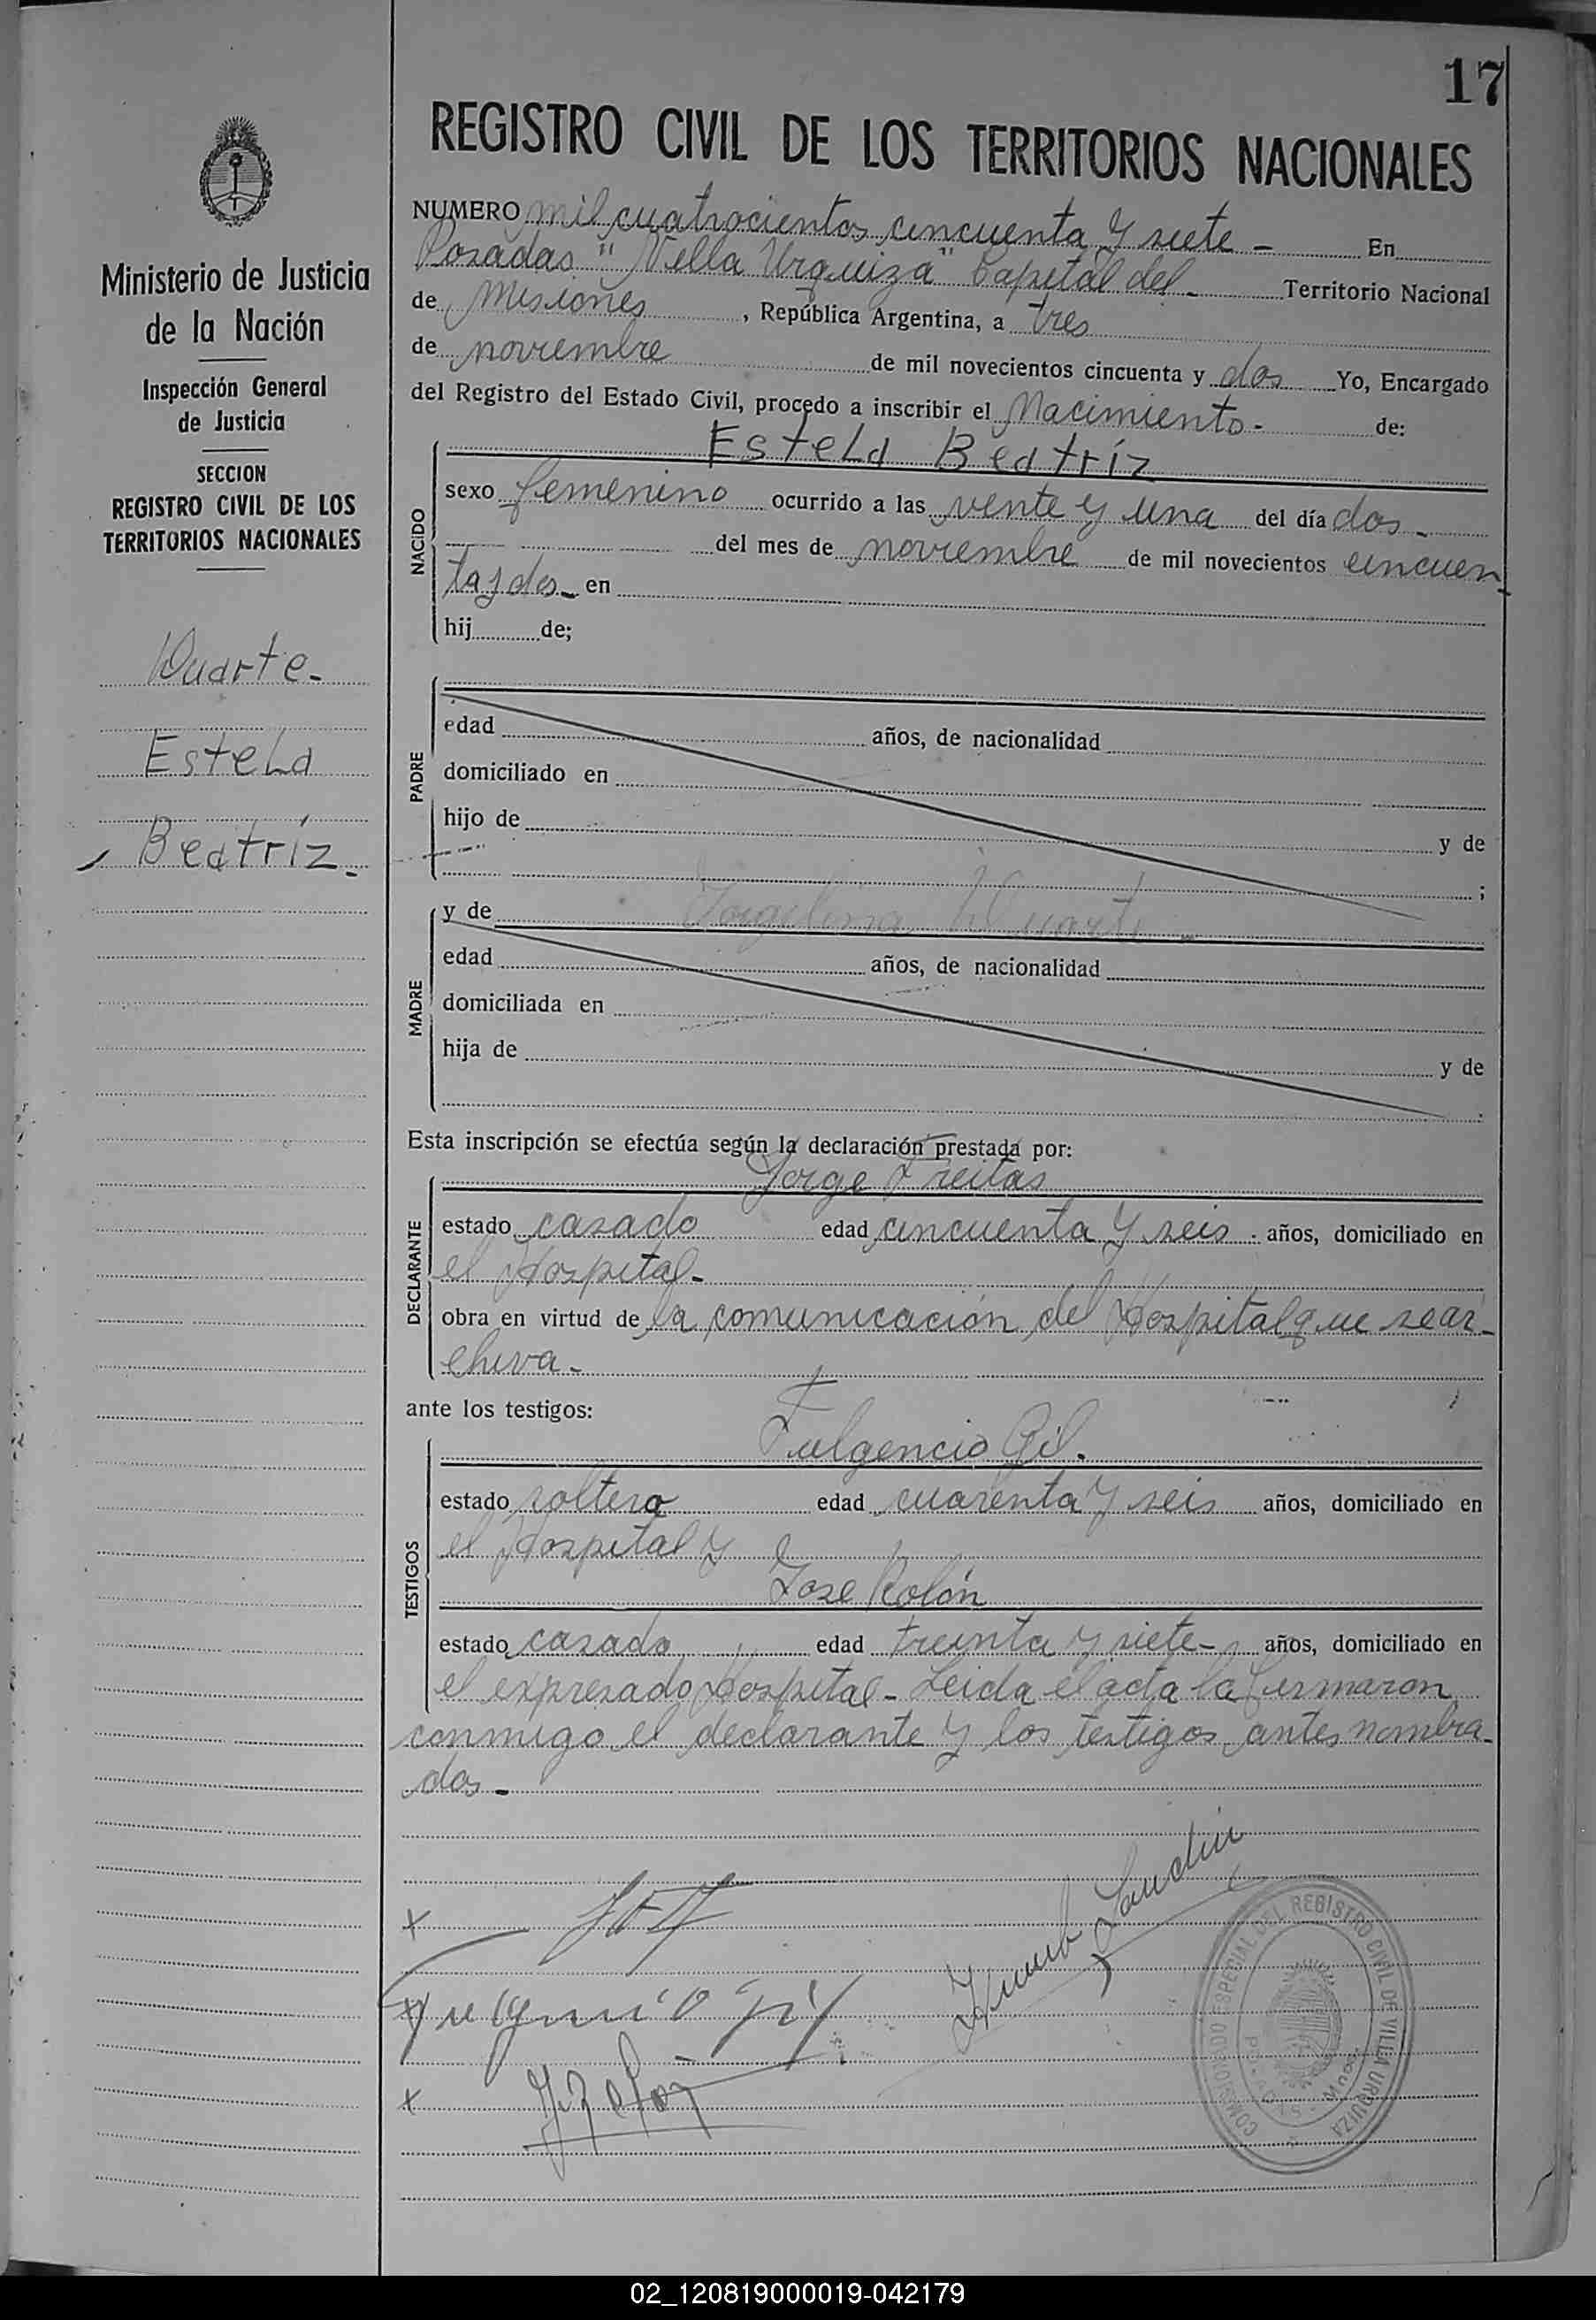 17
REGISTRO CIVIL DE LOS TERRITORIOS NACIONALES
Ministerio de Justicia
de la Nación
Inspección General
de Justicia
SECCION
REGISTRO CIVIL DE LOS
TERRITORIOS NACIONALES
Duarte -
Estela
Beatríz -
NUMERO mil cuatrocientos cincuenta y siete - En
Posadas "Villa Urquiza" Capital del - Territorio Nacional
de Misiones, República Argentina, a tres
de noviembre de mil novecientos cincuenta y dos Yo, Encargado
del Registro del Estado Civil, procedo a inscribir el Nacimiento - de:
Estela Beatríz
NACIDO
sexo femenino ocurrido a las vente y una del día dos -
del mes de noviembre de mil novecientos cincuen
ta y dos - en
hij de;
PADRE
edad años, de nacionalidad
domiciliado en
hijo de y de
;
MADRE
y de Jorgelina Duarte -
edad años, de nacionalidad
domiciliada en
hija de y de
Esta inscripción se efectúa según la declaración prestada por:
DECLARANTE
Jorge Freitas
estado casado edad cincuenta y seis - años, domiciliado en
el Hospital -
obra en virtud de la comunicación del Hospital que se ar-
chiva -
ante los testigos:
TESTIGOS
Fulgencio Gil.
estado soltero edad cuarenta y seis años, domiciliado en
el Hospital y
Jose Rolón
estado casado edad treinta y siete - años, domiciliado en
el expresado Hospital - Leida el acta la firmaron
conmigo el declarante y los testigos antes nombra-
dos -
COMISIONADO ESPECIAL DEL REGISTRO CIVIL DE VILLA URQUIZA
02_120819000019-042179